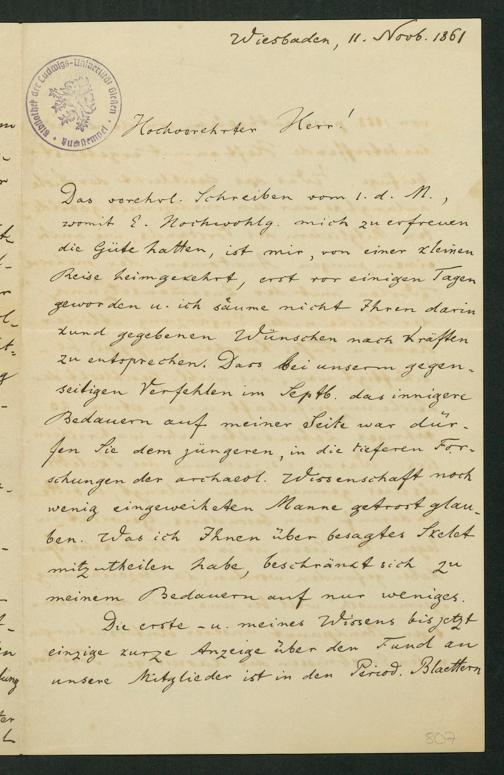 Wiesbaden, 11. Novb. 1861
Bibliothek der Ludwigs-Universität Gießen
Hochverehrter Herr!
Das verehrl. Schreiben vom 1. d. M.,
womit E. Hochwohlg. mich zu erfreuen
die Güte hatten, ist mir, von einer kleinen
Reise heimgekehrt, erst vor einigen Tagen
geworden u. ich säume nicht Ihren darin
kund gegebenen Wünschen nach Kräften
zu entsprechen. Dass bei unserm gegen-
seitigen Verfehlen im Septb. das innigere
Bedauern auf meiner Seite war dür-
fen Sie dem jüngeren, in die tieferen For-
schungen der archaeol. Wissenschaft noch
wenig eingeweiheten Manne getrost glau-
ben. Was ich Ihnen über besagtes Skelet
mitzutheilen habe, beschränkt sich zu
meinem Bedauern auf nur weniges.
Die erste - u. meines Wissens bis jetzt
einzige kurze Anzeige über den Fund an
unsere Mitglieder ist in den Period. Blaettern
807